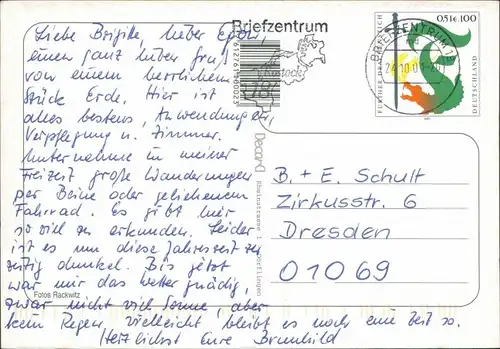 Liebe Brigitte, lieber Egon,
einen ganz lieben Gruß
von einem herrlichen
Stück Erde. Hier ist
alles bestens, Anwendungen,
Verpflegung u. Zimmer.
Unternehme in meiner
Freizeit große Wanderungen
per Beine oder geliehenem
Fahrrad. Es gibt hier
so viel zu erkunden. Leider
ist es um diese Jahreszeit zu
zeitig dunkel. Bis jetzt
war mir das Wetter gnädig,
zwar nicht viel Sonne, aber
kein Regen, vielleicht bleibt es noch eine Zeit so.
Herzlichst Eure Brunhild
Fotos Rackwitz
Briefzentrum
Rostock
18
BRIEFZENTRUM 18
24.10.01
0,51€ 100
DEUTSCHLAND
B. + E. Schult
Zirkusstr. 6
Dresden
01069